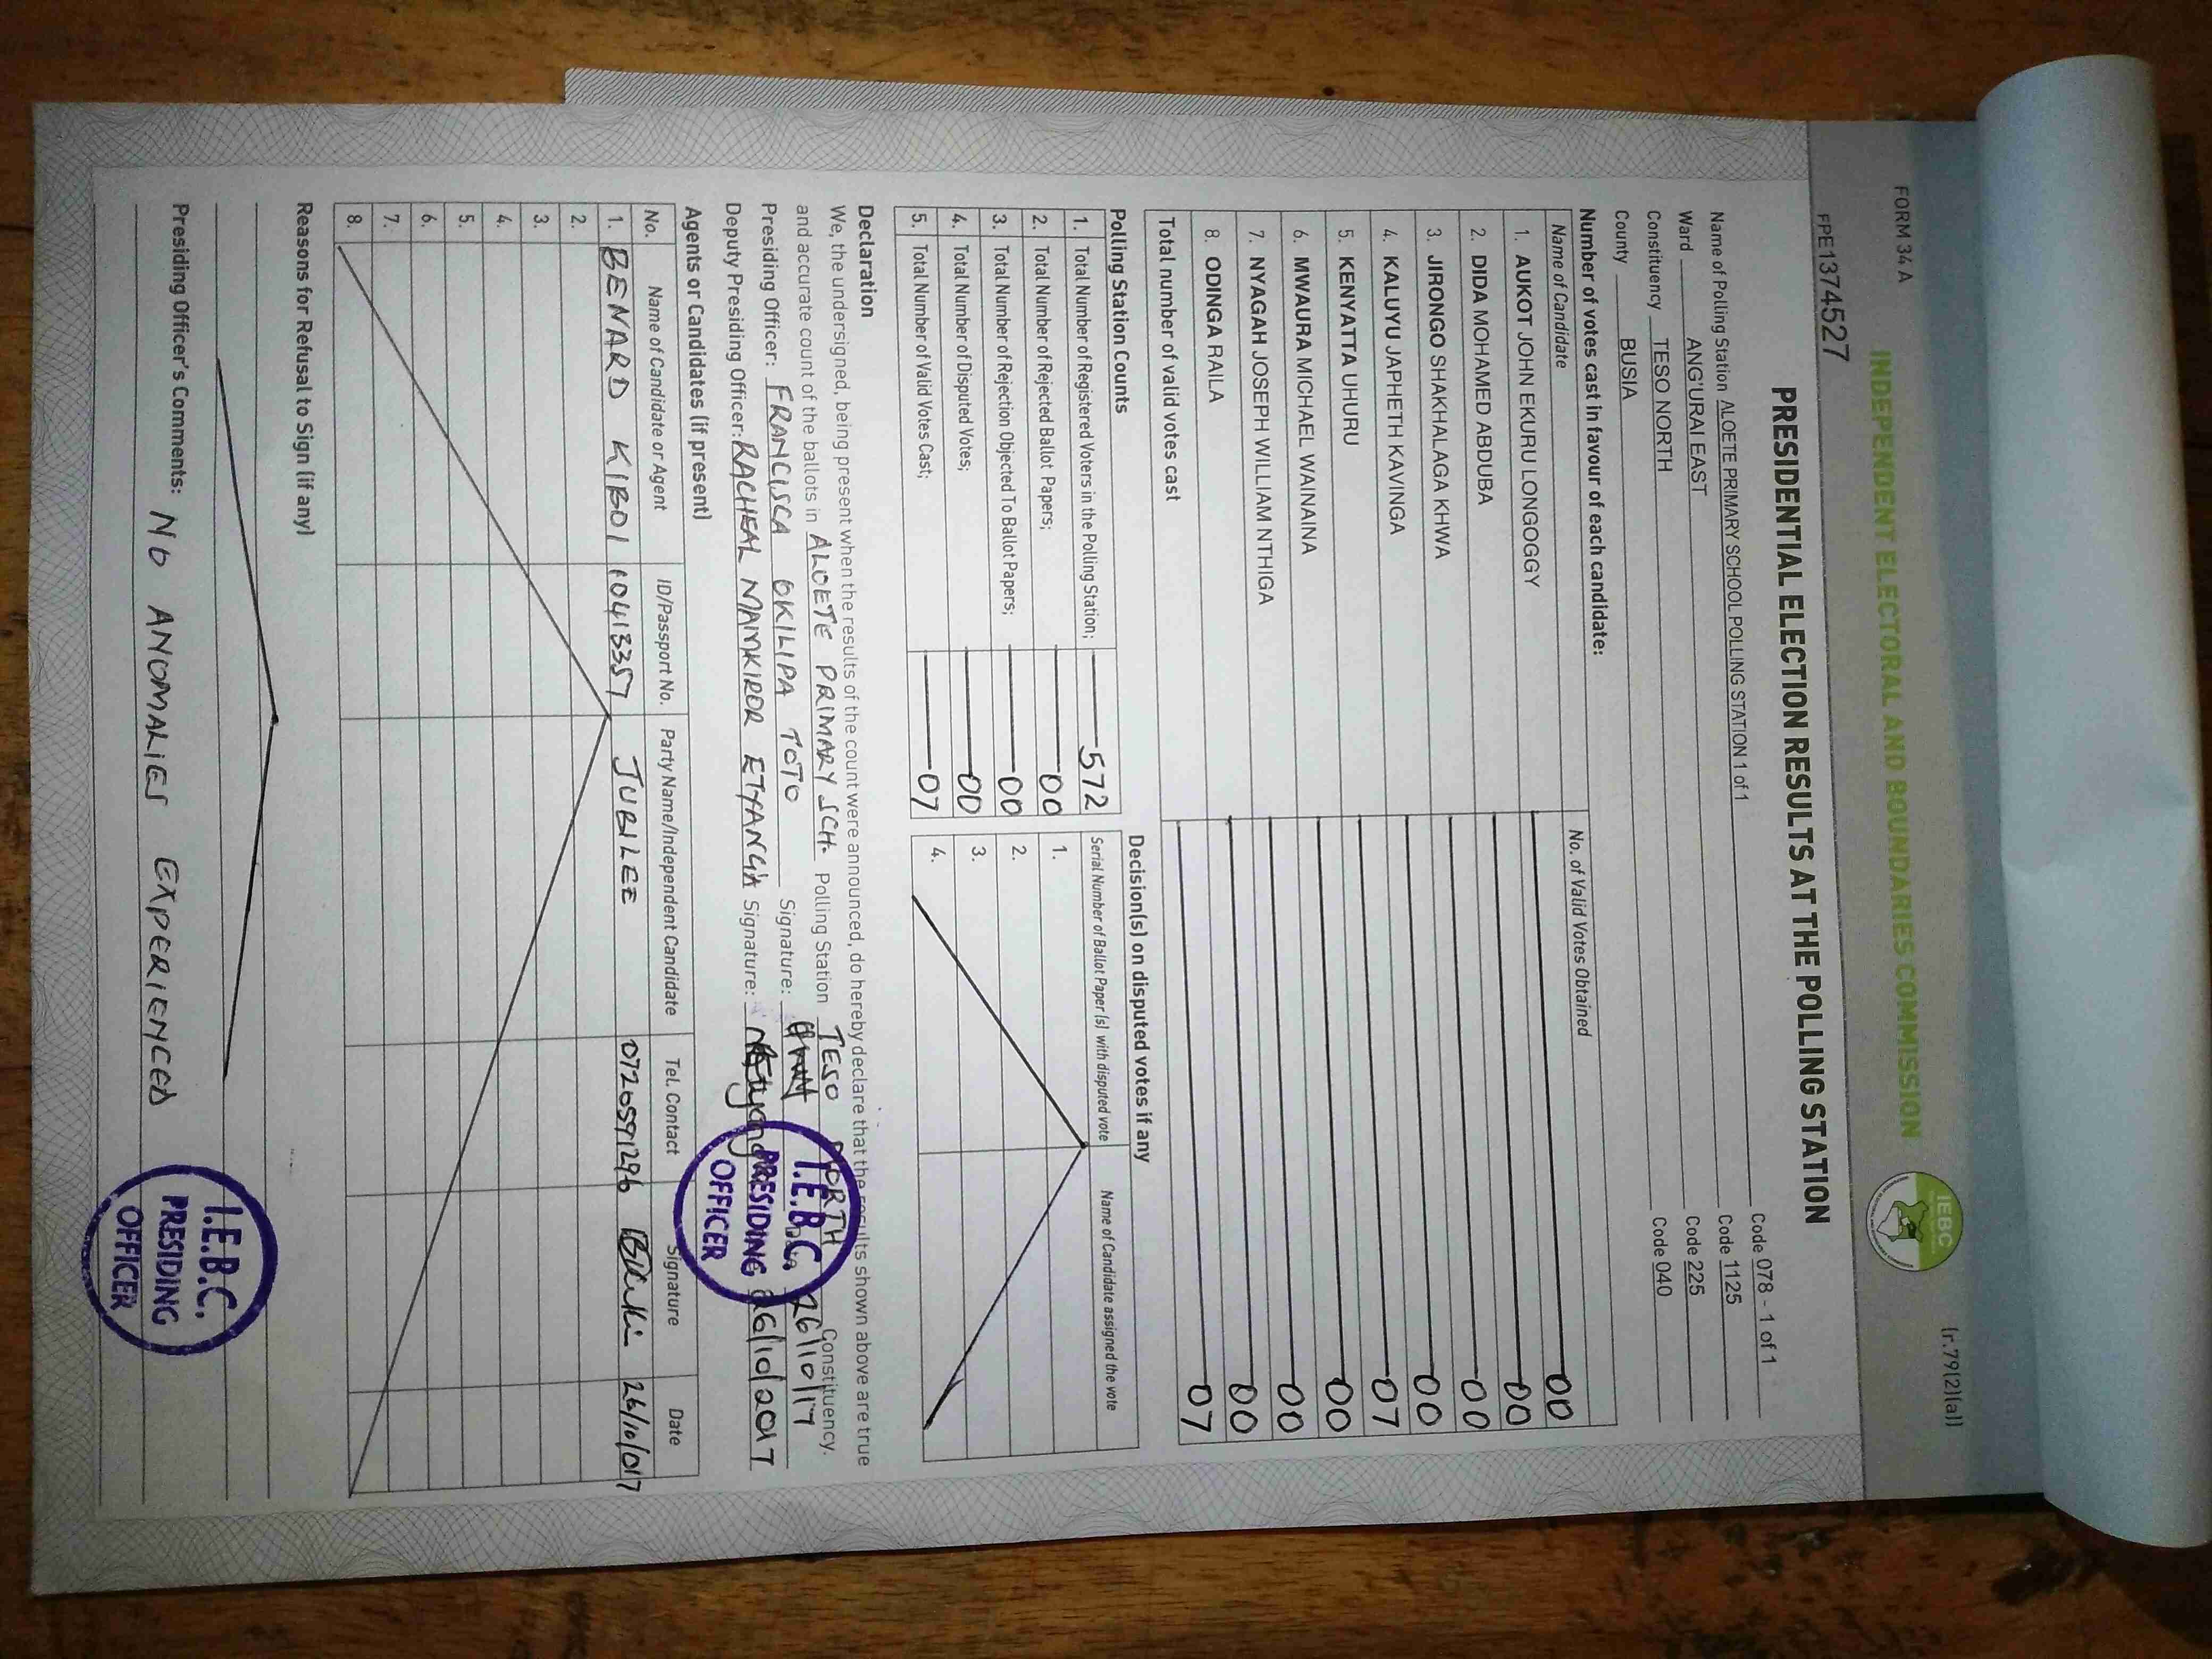 FORM 34 A
(r.79(2)(a))
INDEPENDENT ELECTORAL AND BOUNDARIES COMMISSION
IEBC
FPE1374527
PRESIDENTIAL ELECTION RESULTS AT THE POLLING STATION
Name of Polling Station ALOETE PRIMARY SCHOOL POLLING STATION 1 of 1 Code 078 - 1 of 1
Ward ANG'URAI EAST Code 1125
Constituency TESO NORTH Code 225
County BUSIA Code 040
Number of votes cast in favour of each candidate:
Name of Candidate No. of Valid Votes Obtained
1. AUKOT JOHN EKURU LONGOGGY 00
2. DIDA MOHAMED ABDUBA 00
3. JIRONGO SHAKHALAGA KHWA 00
4. KALUYU JAPHETH KAVINGA 00
5. KENYATTA UHURU 07
6. MWAURA MICHAEL WAINAINA 00
7. NYAGAH JOSEPH WILLIAM NTHIGA 00
8. ODINGA RAILA 00
Total number of valid votes cast 07
Polling Station Counts
1. Total Number of Registered Voters in the Polling Station; 572
2. Total Number of Rejected Ballot Papers; 00
3. Total Number of Rejection Objected To Ballot Papers; 00
4. Total Number of Disputed Votes; 00
5. Total Number of Valid Votes Cast; 07
Decision(s) on disputed votes if any
Serial Number of Ballot Paper (s) with disputed vote Name of Candidate assigned the vote
1.
2.
3.
4.
Declaration
We, the undersigned, being present when the results of the count were announced, do hereby declare that the results shown above are true
and accurate count of the ballots in ALOETE PRIMARY SCH. Polling Station TESO NORTH Constituency.
Presiding Officer: FRANCISCA OKILIPA TOTO Signature: 26/10/17
Deputy Presiding Officer: RACHEAL MAMKIROR ETYANG'A Signature: 26/10/2017
I.E.B.C.
PRESIDING
OFFICER
Agents or Candidates (if present)
No. Name of Candidate or Agent ID/Passport No. Party Name/Independent Candidate Tel. Contact Signature Date
1. BENARD KIBOI 10413357 JUBILEE 0720591296 26/10/017
2.
3.
4.
5.
6.
7.
8.
Reasons for Refusal to Sign (if any)
Presiding Officer's Comments: NO ANOMALIES EXPERIENCED
I.E.B.C.
PRESIDING
OFFICER